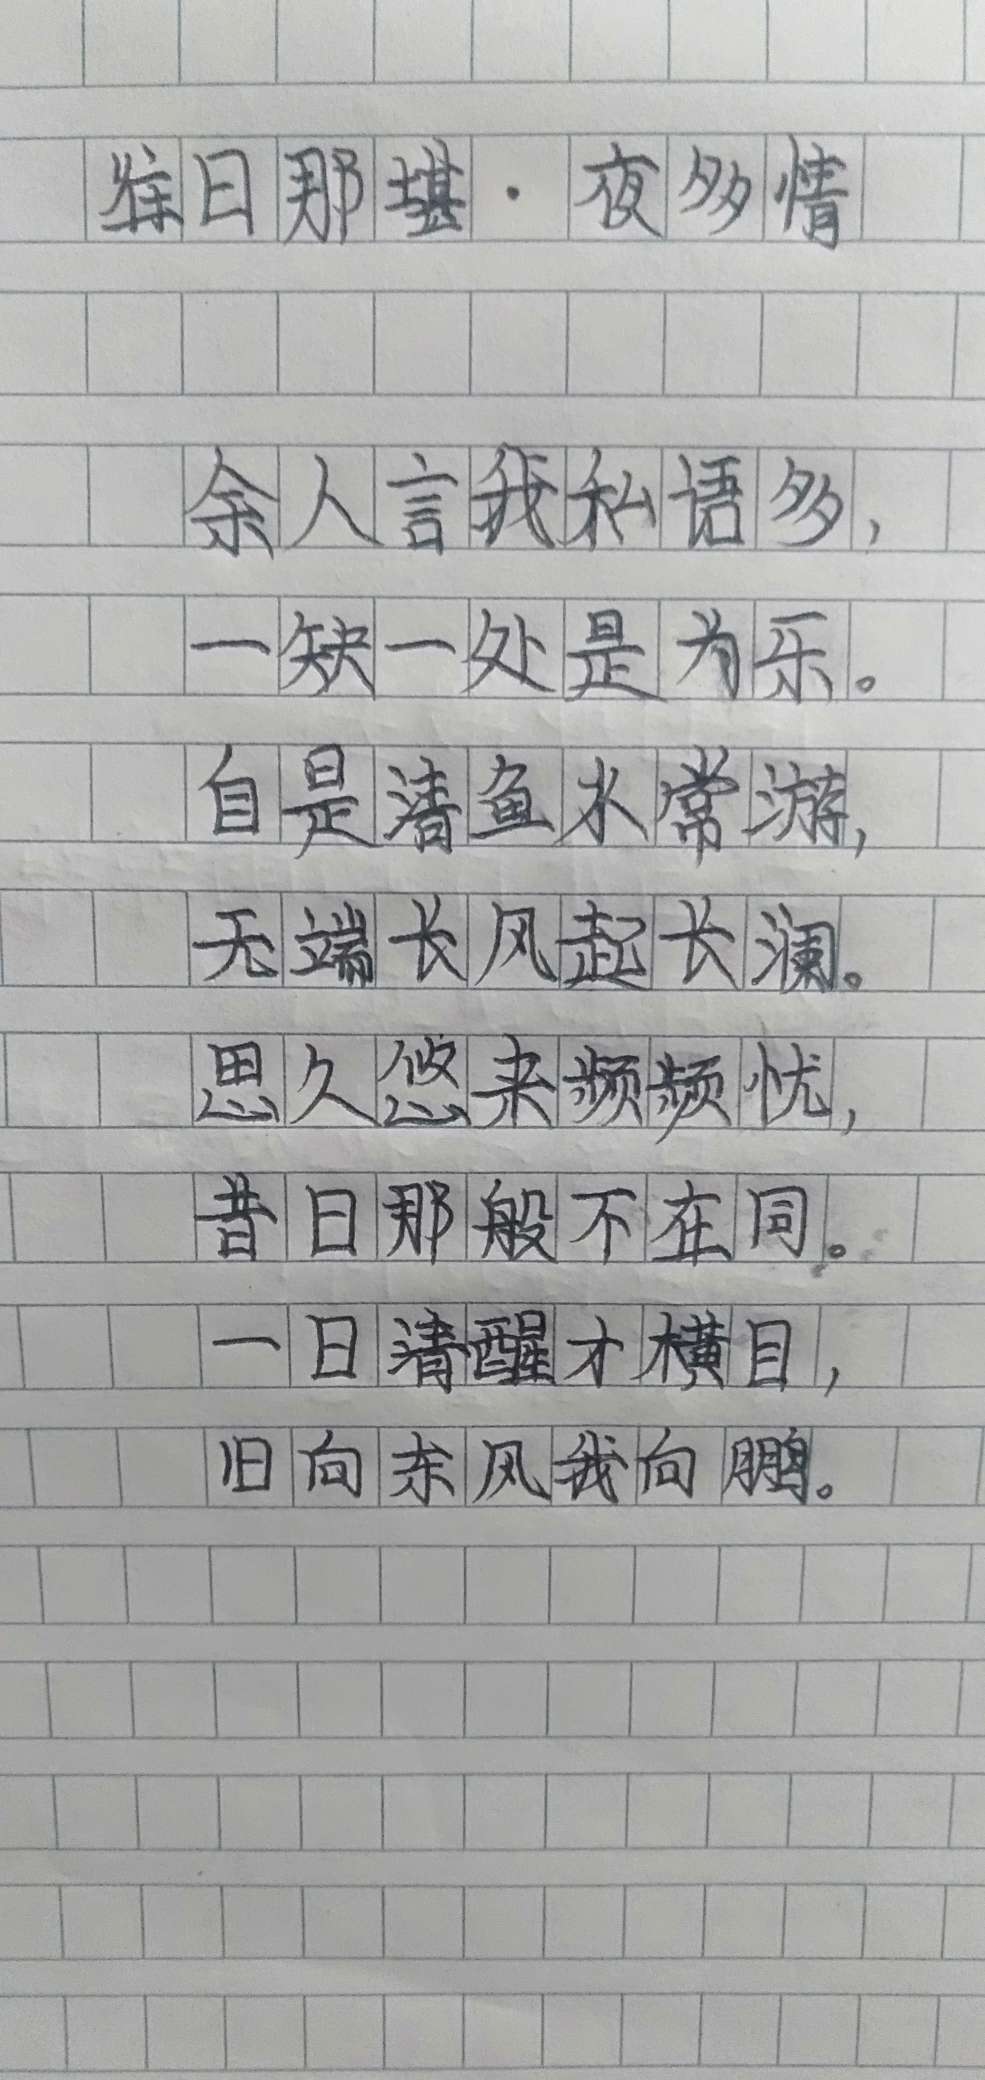 往日那堪·夜多情
余人言我私语多，
一缺一处是为乐。
自是清鱼水常游，
无端长风起长澜。
思久悠来频频忧，
昔日那般不在同。
一日清醒才横目，
旧向东风我向鹏。